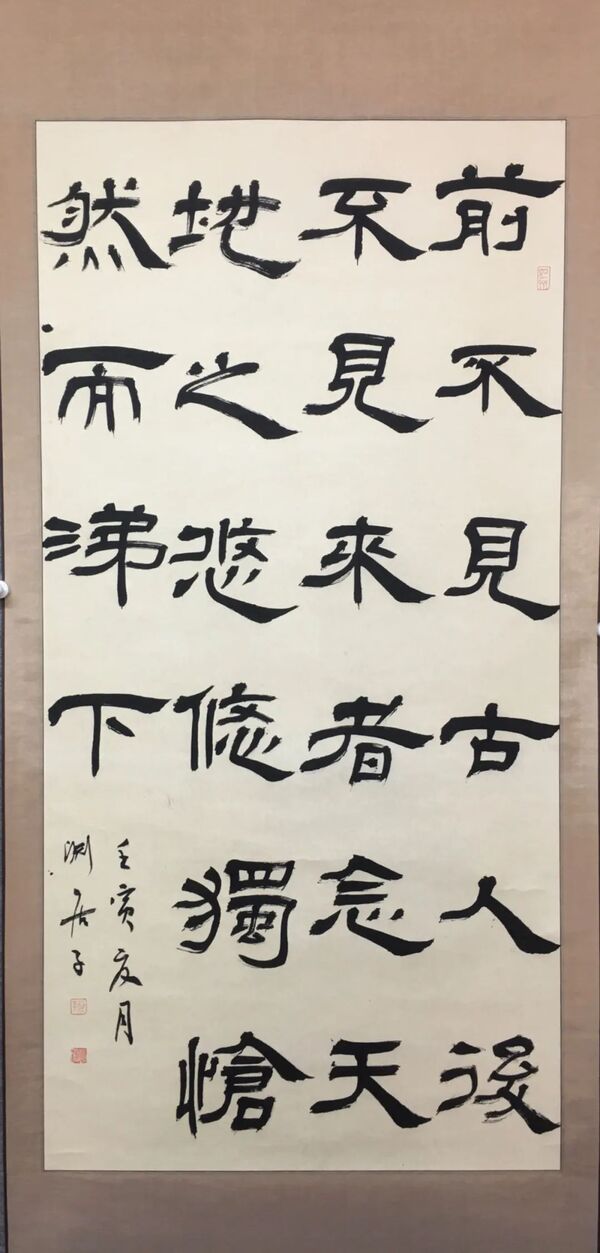 前不見古人後
不見來者念天
地之悠悠獨愴
然而涕下
壬寅夏月
居子